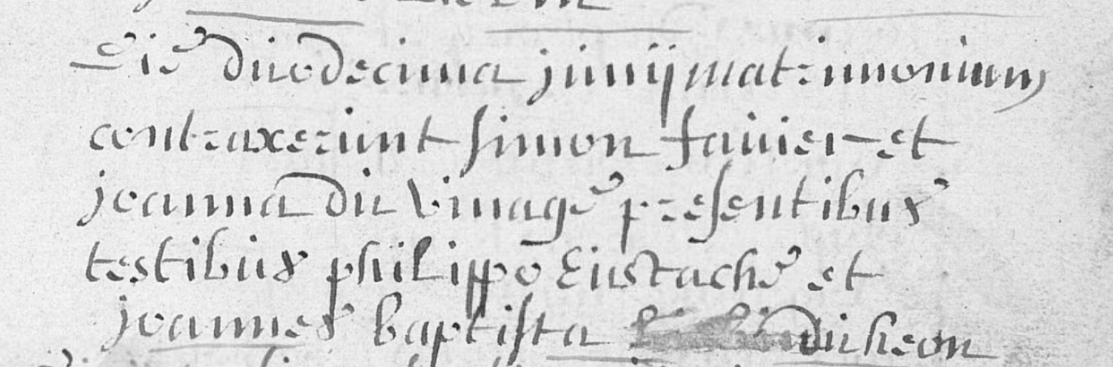 Die duodecima junij matrimonium
contraxerunt simon favier et
joanna du vinage presentibus
testibus philippo Eustache et
joannes baptista duheon